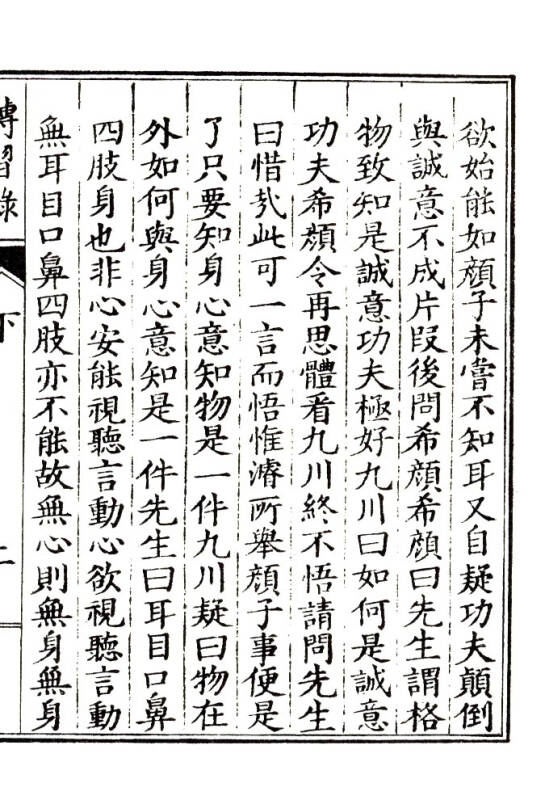 欲始能如顔子未嘗不知耳又自疑功夫顛倒
與誠意不成片段後問希顔希顔曰先生謂格
物致知是誠意功夫極好九川曰如何是誠意
功夫希顔令再思體看九川終不悟請問先生
曰惜㢤此可一言而悟惟濬所舉顔子事便是
了只要知身心意知物是一件九川疑曰物在
外如何與身心意知是一件先生曰耳目口鼻
四肢身也非心安能視聽言動心欲視聽言動
無耳目口鼻四肢亦不能故無心則無身無身
傳習錄 下 二